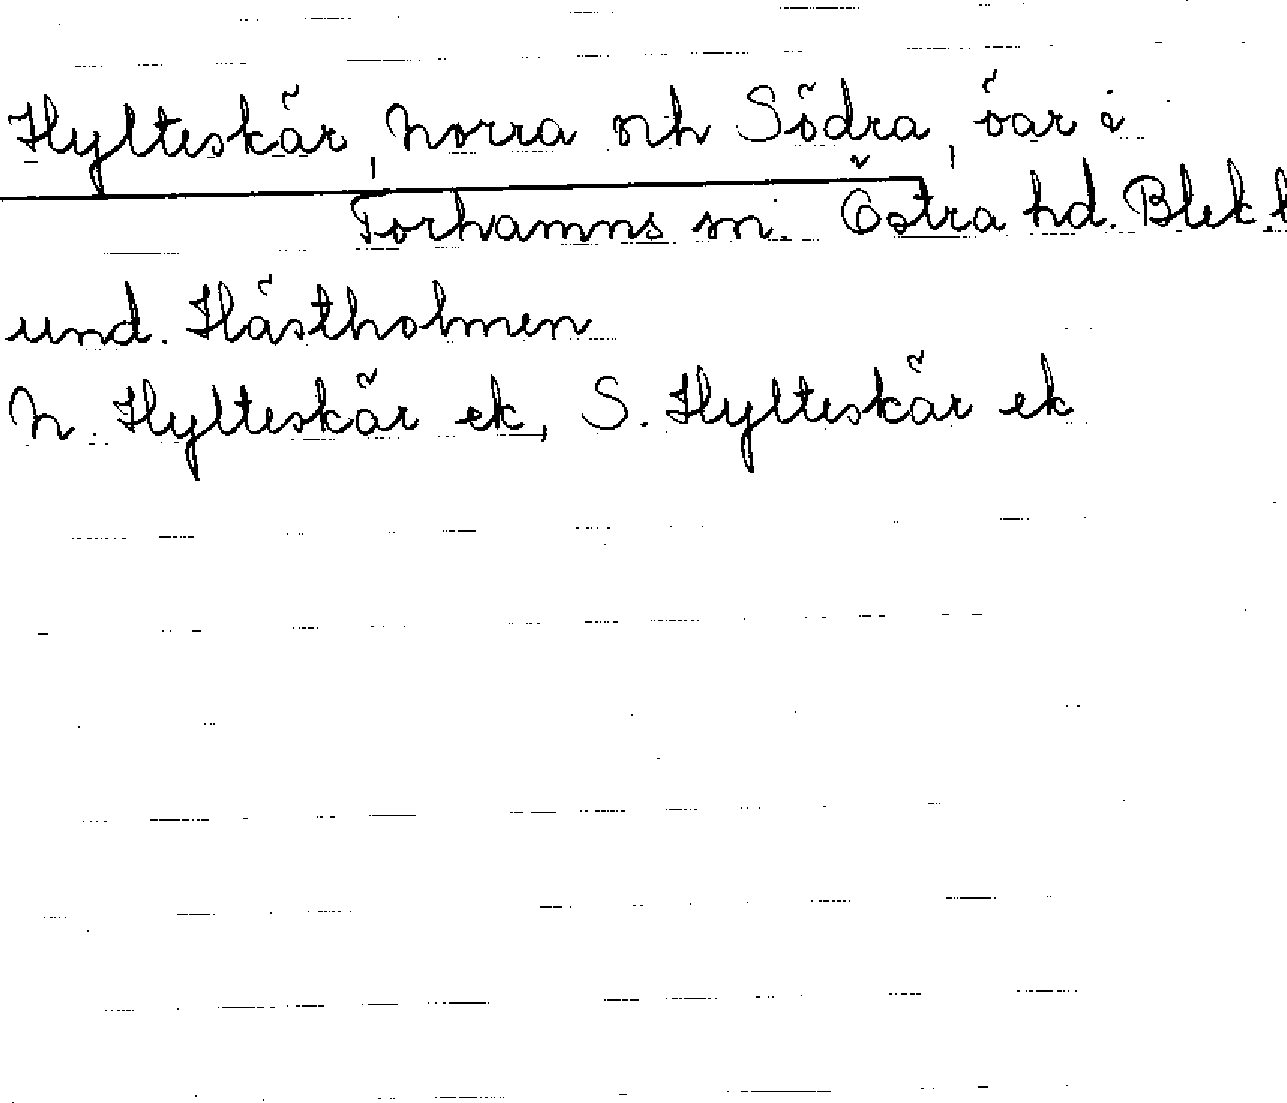 Hylteskär, Norra och Södra, öar i
Torhamns sn. Östra hd. Blek. l
und. Hästholmen
N. Hylteskär ek, S. Hylteskär ek